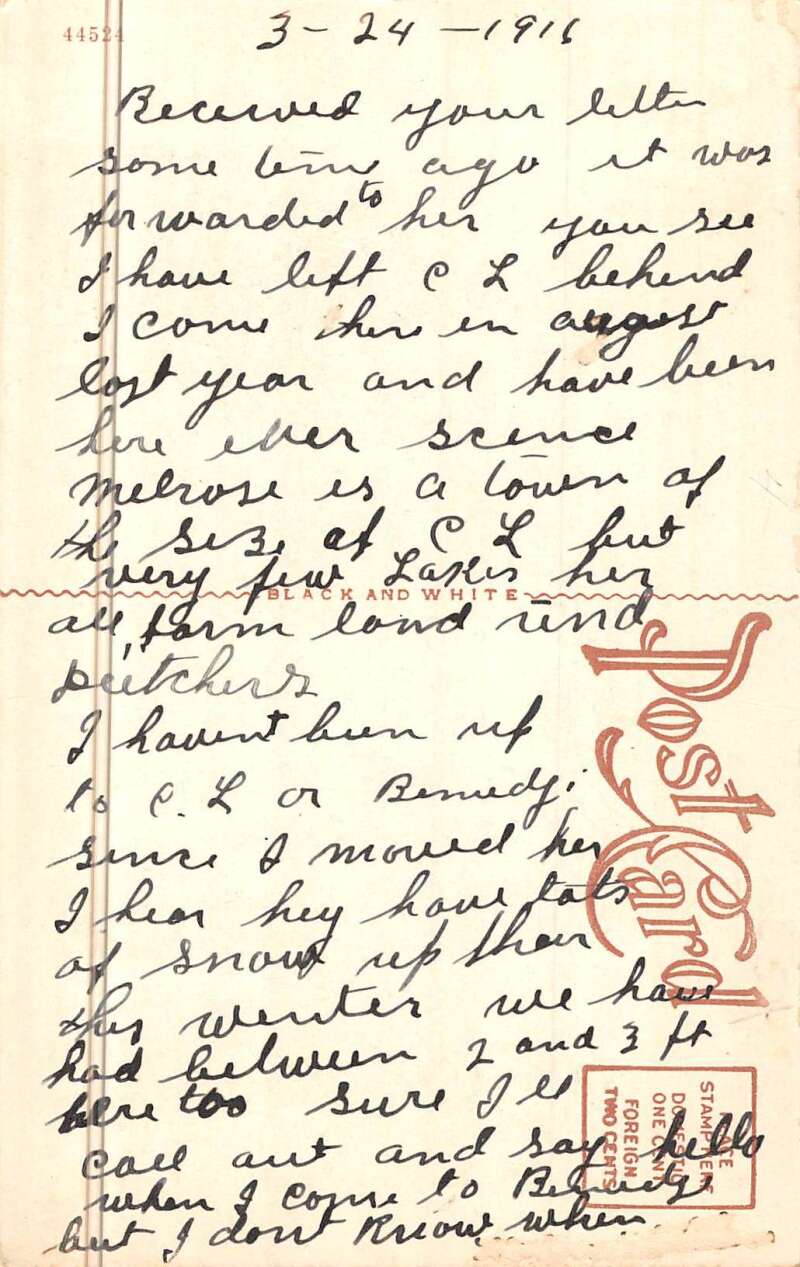 44524
3-24-1916
Received your letter
some time ago it was
forwarded to her you see
I have left C L behind
I come here in august
last year and have been
here ever scence
Melrose is a town of
the size of C L but
very few Lakes her
BLACK AND WHITE
all farm land und
Deitchers
I havent been up
to C. L or Bemedji
since I moved her
I hear hey have lots
of snow up ther
this winter we have
had between 2 and 3 ft
here too sure I ll
call out and say hello
when I come to Bemedji
but I dont know when
Post Card
PLACE
STAMP HERE
DOMESTIC
ONE CENT
FOREIGN
TWO CENTS